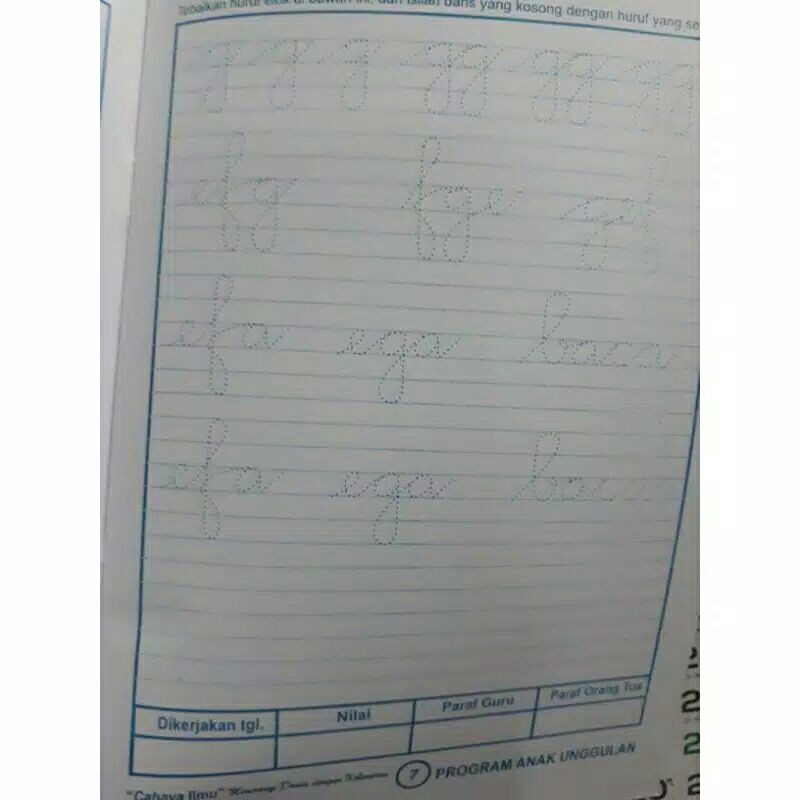 huruf di bawah ini, dan isilah baris yang kosong dengan huruf yang
g g g gg gg gg
efg fge gef
efa ega baca
efa ega baca
Dikerjakan tgl. Nilai Paraf Guru Paraf Orang Tua
"Cahaya Ilmu" 7 PROGRAM ANAK UNGGULAN